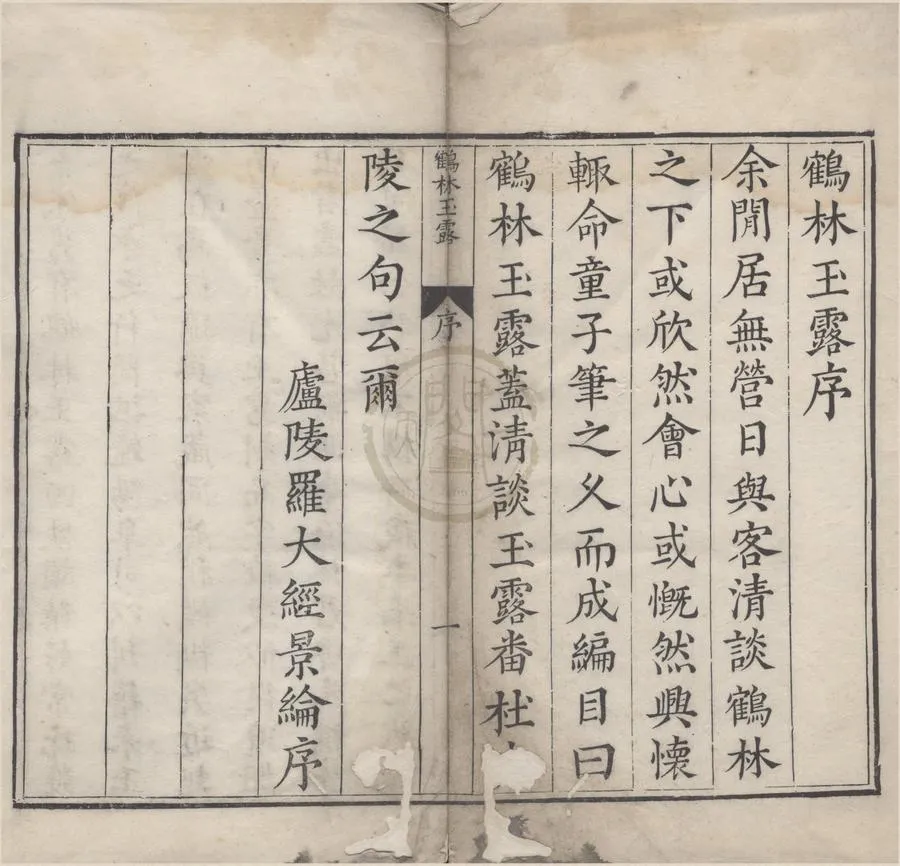 鶴林玉露序
余閒居無營日與客清談鶴林
之下或欣然會心或慨然興懷
輙命童子筆之乆而成編目曰
鶴林玉露蓋清談玉露畨杜
鶴林玉露 序 一
陵之句云爾
廬陵羅大經景綸序